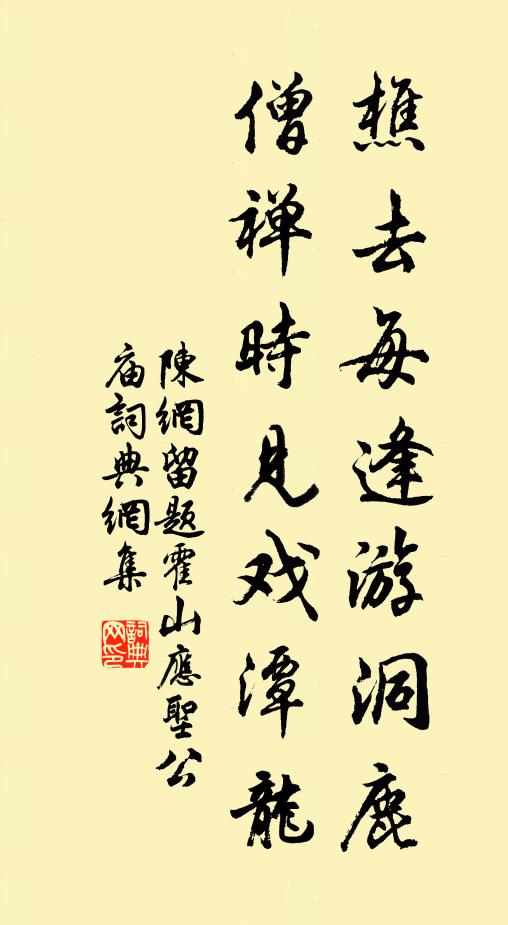 樵去每逢游洞鹿
僧禅時見戏潭龍
陳網留题霍山應聖公
庙詞典網集
詞典
网印